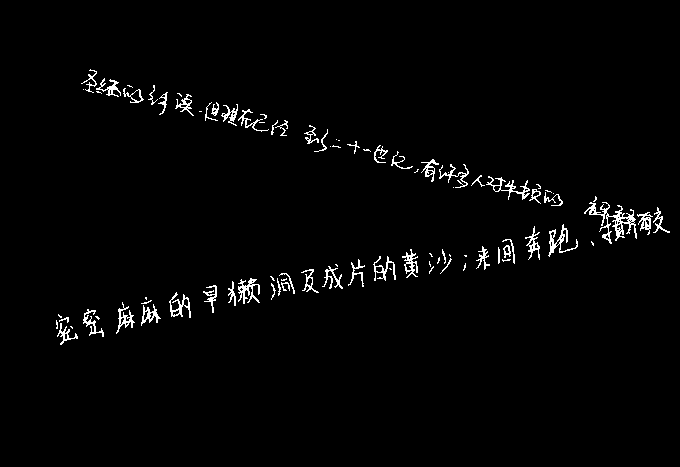 圣经的解读.但现在已经 到二十一世纪,有许多人对牛顿的
密密麻麻的旱獭洞及成片的黄沙;来回奔跑、